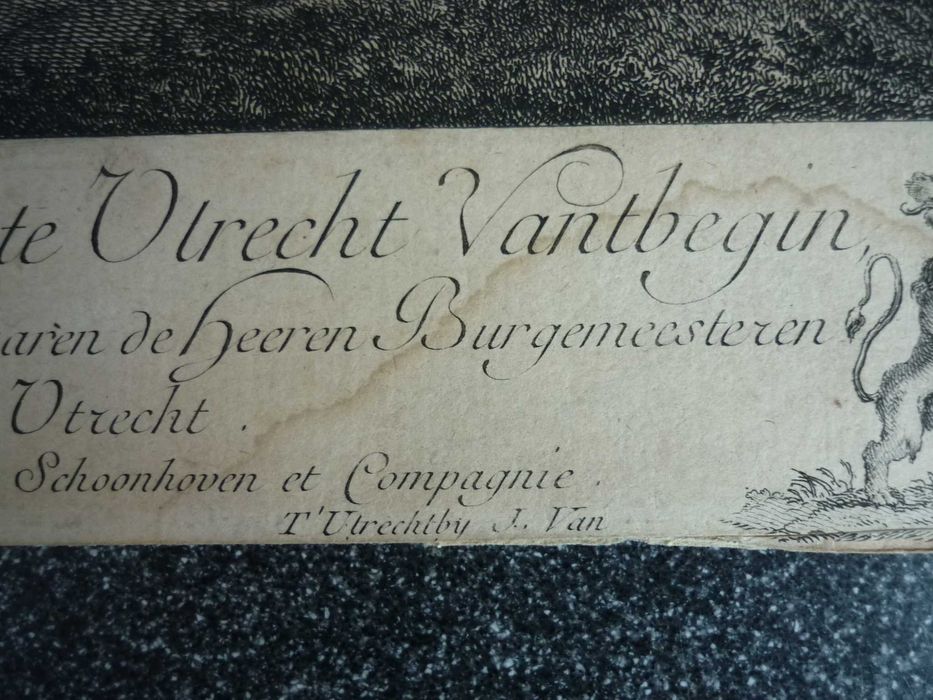 te Utrecht Vantbegin,
aren de Heeren Burgemeesteren
Utrecht .
Schoonhoven et Compagnie .
T'Utrechtby J. Van